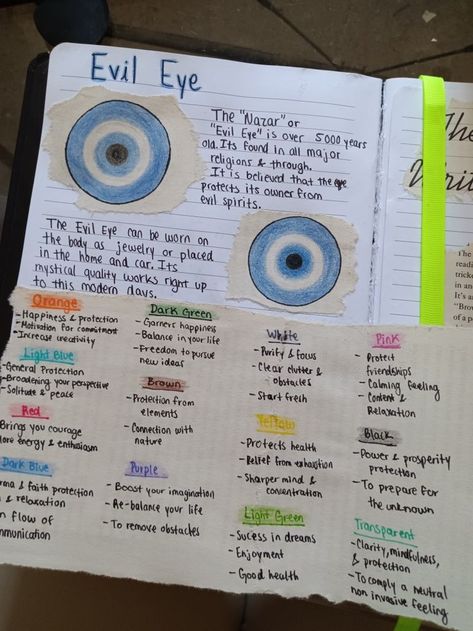 Evil Eye
The "Nazar" or
"Evil Eye" is over 5000 years
old. Its found in all major
religions & through.
It is believed that the eye
protects its owner from
evil spirits.
The Evil Eye can be worn on
the body as jewelry or placed
in the home and car. Its
mystical quality works right up
to this modern days.
Orange
- Happiness & protection
- Motivation for commitment
- Increase creativity
Light Blue
- General Protection
- Broadening your perspective
- Solitude & peace
Red
Brings you courage
more energy & enthusiasm
Dark Blue
& faith protection
& relaxation
flow of
Dark Green
- Garners happiness
- Balance in your life
- Freedom to pursue
new ideas
Brown
- Protection from
elements
- Connection with
nature
Purple
- Boost your imagination
- Re-balance your life
- To remove obstacles
White
- Purify & focus
- Clear clutter &
obstacles
- Start fresh
Yellow
- Protects health
- Relief from exhaustion
- Sharper mind &
concentration
Light Green
- Sucess in dreams
- Enjoyment
- Good health
Pink
- Protect
friendships
- Calming feeling
- Content &
Relaxation
Black
- Power & prosperity
protection
- To prepare for
the unknown
Transparent
- Clarity, mindfulness,
& protection
- To comply a neutral
non invasive feeling
The
The
readi
trick
in an
It's a
"Brow
of a p